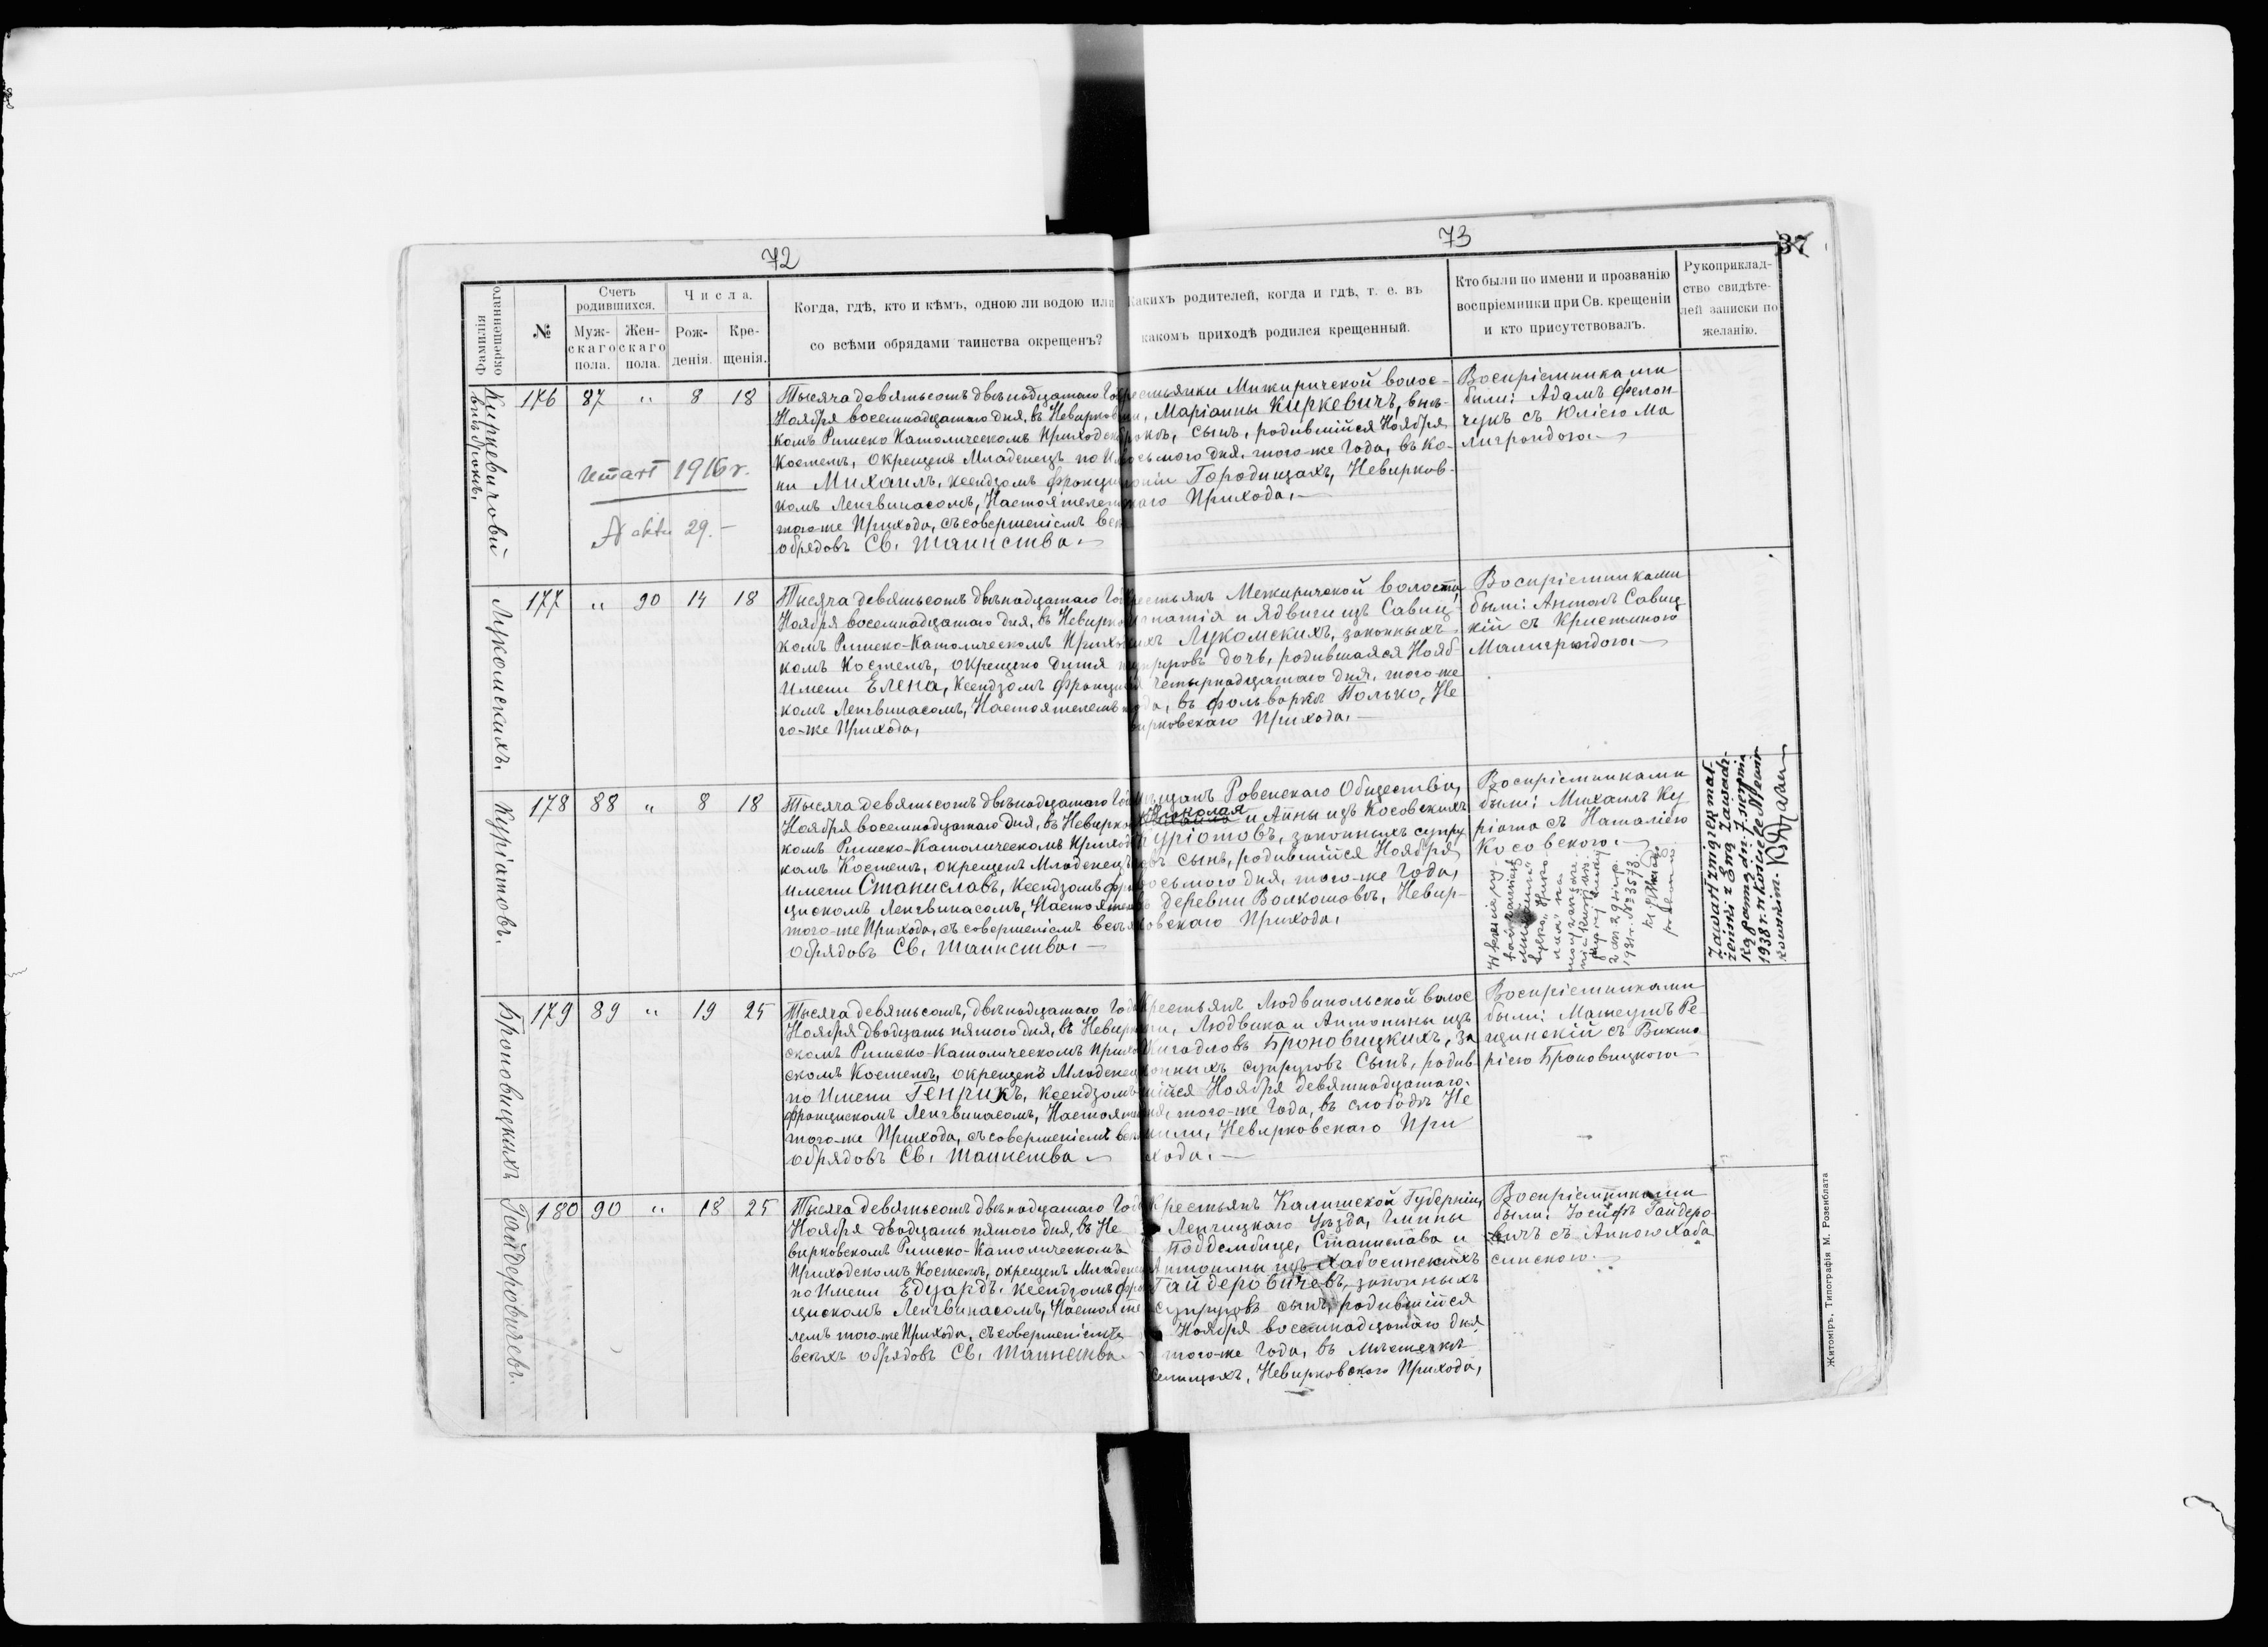 72
73
37
Фамилія окрещеннаго.
№
Счетъ родившихся.
Муж-скаго пола.
Жен-скаго пола.
Числа.
Рож-денія.
Кре-щенія.
Когда, гдѣ, кто и кѣмъ, одною ли водою или
со всѣми обрядами таинства окрещенъ?
Какихъ родителей, когда и гдѣ, т. е. въ
какомъ приходѣ родился крещенный.
Кто были по имени и прозванію
воспріемники при Св. крещеніи
и кто присутствовалъ.
Рукоприклад-
ство свидѣте-
лей записки по
желанію.
Киркевичовой
внѣбрачн.
176 87 " 8 18
umarł 1916 r.
N aktu 29.-
Тысяча девятьсотъ двѣнадцатаго Го
Ноября восемнадцатаго дня, въ Невирков
комъ Римско Католическомъ Приходск
Костелѣ, окрещенъ Младенецъ по И
ни Михаилъ, Ксендзомъ Франци
комъ Ленгвинасомъ, Настоятеле
того-же Прихода, съ совершеніемъ всѣ
обрядовъ Св. Таинства.—
рестьянки Межиричской волос-
ти, Маріанны Киркевичъ, внѣ-
брачн, сынъ, родившійся Ноября
восьмого дня, того-же Года, въ Ко-
лоніи Городищахъ, Невирков-
скаго Прихода.—
Воспріемниками
были: Адамъ Фелон
чукъ съ Юліею Ма
лиграндою.—
Лукомскихъ.
177 " 90 14 18
Тысяча девятьсотъ двѣнадцатаго Го
Ноября восемнадцатаго дня, въ Невирко
комъ Римско-Католическомъ Приход
комъ Костелѣ, окрещено дитя
имени Елена, Ксендзомъ Францис
комъ Ленгвинасомъ, Настоятелемъ
го-же Прихода,
рестьянъ Межиричской волости,
Игнатія и Ядвиги изъ Савиц-
кихъ Лукомскихъ, законныхъ
супруговъ дочь, родившаяся Нояб-
я четырнадцатаго дня, того-же
да, въ фольваркѣ Полько, Не
вирковскаго Прихода.—
Воспріемниками
были: Антонъ Савиц
кій съ Кристиною
Малиграндою.—
Куріатовъ.
178 88 " 8 18
Тысяча девятьсотъ двѣнадцатаго Го
Ноября восемнадцатаго дня, въ Невирко
комъ Римско-Католическомъ Приход
комъ Костелѣ, окрещенъ Младенецъ
имени Станиславъ, Ксендзомъ Фра
цискомъ Ленгвинасомъ, Настояте
того-же Прихода, съ совершеніемъ всѣх
обрядовъ Св. Таинства.—
Мѣщанъ Ровенскаго Общества,
Николая и Анны изъ Косовскихъ
Куріатовъ, законныхъ супру
говъ сынъ, родившійся Ноября
восьмого дня, того-же Года,
въ деревни Волкошовѣ, Невир-
ковскаго Прихода,
Воспріемниками
были: Михаилъ Ку
ріата съ Наталіею
Косовскою.—
1931 r. № 3573.
Zawarł związek mał-
żeński z
dn. 7. sierpnia
1938 r. w kościele Newir-
kowskim.
Броновицкихъ
179 89 " 19 25
Тысяча девятьсотъ, двѣнадцатаго Года
Ноября двадцать пятого дня, въ Невирко
скомъ Римско-Католическомъ Прихо
скомъ Костелѣ, окрещенъ Младенец
по Имени Генрикъ, Ксендзомъ
Францискомъ Ленгвинасомъ, Настояте
того-же Прихода, съ совершеніемъ всѣ
обрядовъ Св. Таинства.—
Крестьянъ Людвипольской волос
ти, Людвика и Антонины изъ
Жигадловъ Броновицкихъ, за
конныхъ супруговъ Сынъ, родив
шійся Ноября девятнадцатаго
дня, того-же Года, въ слободѣ Не
вили, Невирковскаго При
хода.—
Воспріемниками
были: Матеушъ Ре-
щинскій съ Викто
ріею Броновицкою.—
Гайдеровичевъ.
180 90 " 18 25
Тысяча девятьсотъ двѣнадцатаго Года
Ноября двадцать пятого дня, въ Не
вирковскомъ Римско-Католическомъ
Приходскомъ Костелѣ, окрещенъ Младене
по Имени Едуардъ, Ксендзомъ Фра
цискомъ Ленгвинасомъ, Настояте
лемъ того-же Прихода, съ совершеніемъ
всѣхъ обрядовъ Св. Таинства.—
Крестьянъ Калишской Губерніи,
Ленчицкаго Уѣзда, Гмины
Поддембице, Станислава и
Антонины изъ Хабасинскихъ
Гайдеровичевъ, законныхъ
супруговъ сынъ, родившійся
Ноября восемнадцатаго дня
того-же Года, въ Мѣстечкѣ
Селищахъ, Невирковскаго Прихода,
Воспріемниками
были: Іосифъ Гайдеро
вичъ съ Анною Хаба
синскою.—
Житоміръ, Типографія М. Розенблата